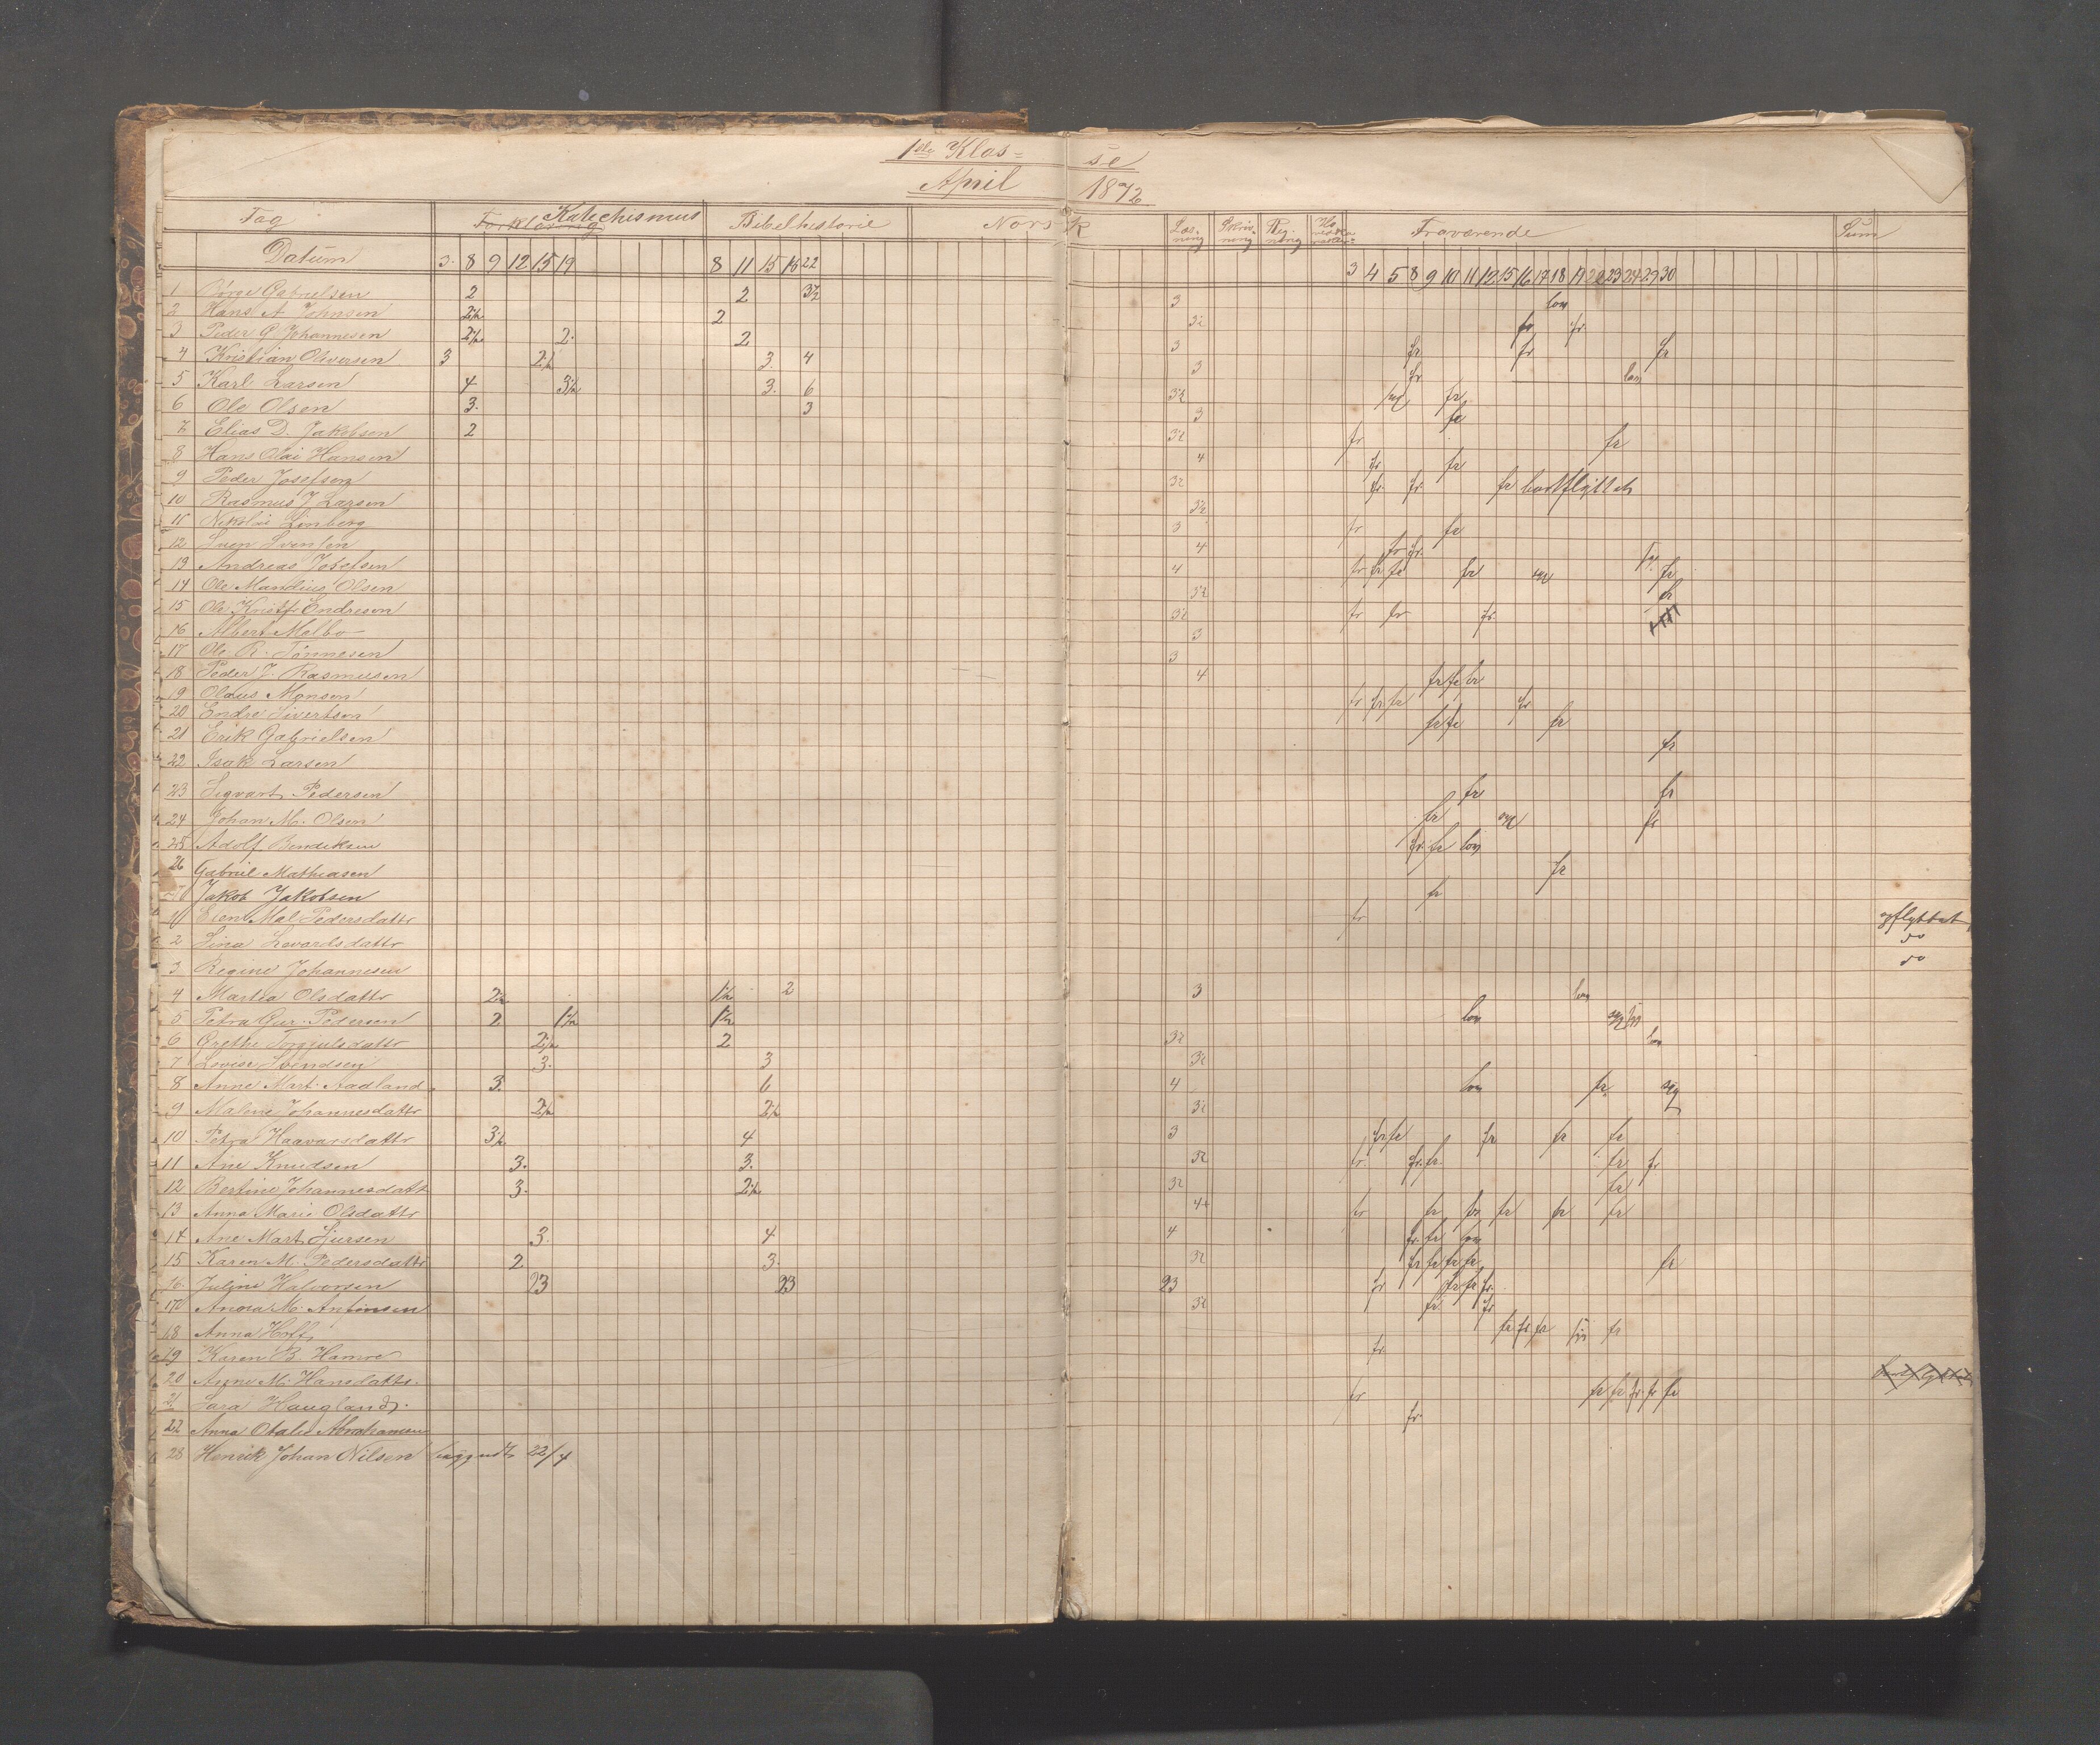 1ste Klas=se
April 1872
Fag Forklaring Katechismus Bibelhistorie Norsk Læsning Skrivning Regning Fraværende Sum
Datum 3. 8 9 12 15 19 8 11 15 18 22 3 4 5 8 9 10 11 12 15 16 17 18 19 22 23 24 29 30
1 Børge Gabrielsen 2 2 3½ 3
2 Hans A Johnsen 2½ 2 3½ fr fr.
3 Peder G Johannesen 2½ 2. 2 3 fr fr fr
4 Kristian Oliversen 3 2½ 3. 4 3 fr
5 Karl Larsen 4 3½ 3. 6 3½ fr
6 Ole Olsen 3. 3 3 fr
7 Elias D. Jakobsen 2 3½ fr fr
8 Hans Olai Hansen 4 fr fr
9 Peder Josefsen 3½ fr. fr. fr bortflyttet
10 Rasmus J Larsen 3½
11 Nikolai Linberg 3 fr fr
12 Sven Svensen 4 fr fr.
13 Andreas Josefsen 4 fr fr fr fr fr
14 Ole Mandius Olsen 3½ fr
15 Ole Kristfr Endresen 3½ fr fr fr.
16 Albert Melbo 3
17 Ole R. Tønnesen 3
18 Peder J. Rasmusen 4 fr fr fr
19 Olaus Monsen fr fr fr fr
20 Endre Sivertsen fr fr fr
21 Erik Gabrielsen fr
22 Isak Larsen
23 Sigvart Pedersen fr fr
24 Johan M. Olsen fr fr
25 Adolf Bendiksen fr. fr
26 Gabriel Mathiasen fr
27 Jakob Jakobsen fr
1 Elen Mal. Pedersdattr fr opflyttet
2 Sina Levardsdattr do
3 Regine Johannesen do
4 Martha Olsdattr 2½ 1½ 2 3
5 Petra Gur. Pedersen 2 1½ 1½
6 Grethe Torgjulsdattr 2½ 2 3½
7 Lovise Svendsen 3. 3 3½
8 Anne Mart. Aadland 3. 6 4 fr.
9 Maline Johannesdattr 2½ 2½ 3½
10 Petra Haavarsdattr 3½ 4 3 fr fr fr fr fr
11 Ane Knudsen 3. 3. 3½ fr. fr. fr. fr fr
12 Bertine Johannesdatt 3. 2½ 3½ fr
13 Anna Marie Olsdattr 4+ fr fr fr fr fr fr
14 Ane Mart. Sjursen 3. 4 4 fr. fr
15 Karen M. Pedersdattr 2 3. 3½ fr fr fr fr fr
16. Juline Halvorsen 23 23 23 fr fr fr fr.
17 Anna M. Anfinsen 3½ fr. fr
18 Anna Hoff fr fr fr fr
19 Karen B. Hamre fr.
20 Anne M. Hansdattr.
21 Sara Haugland. fr fr fr fr. fr fr
22 Anna Otalie Abrahamsen fr.
28 Henrik Johan Nilsen begyndt 22/4